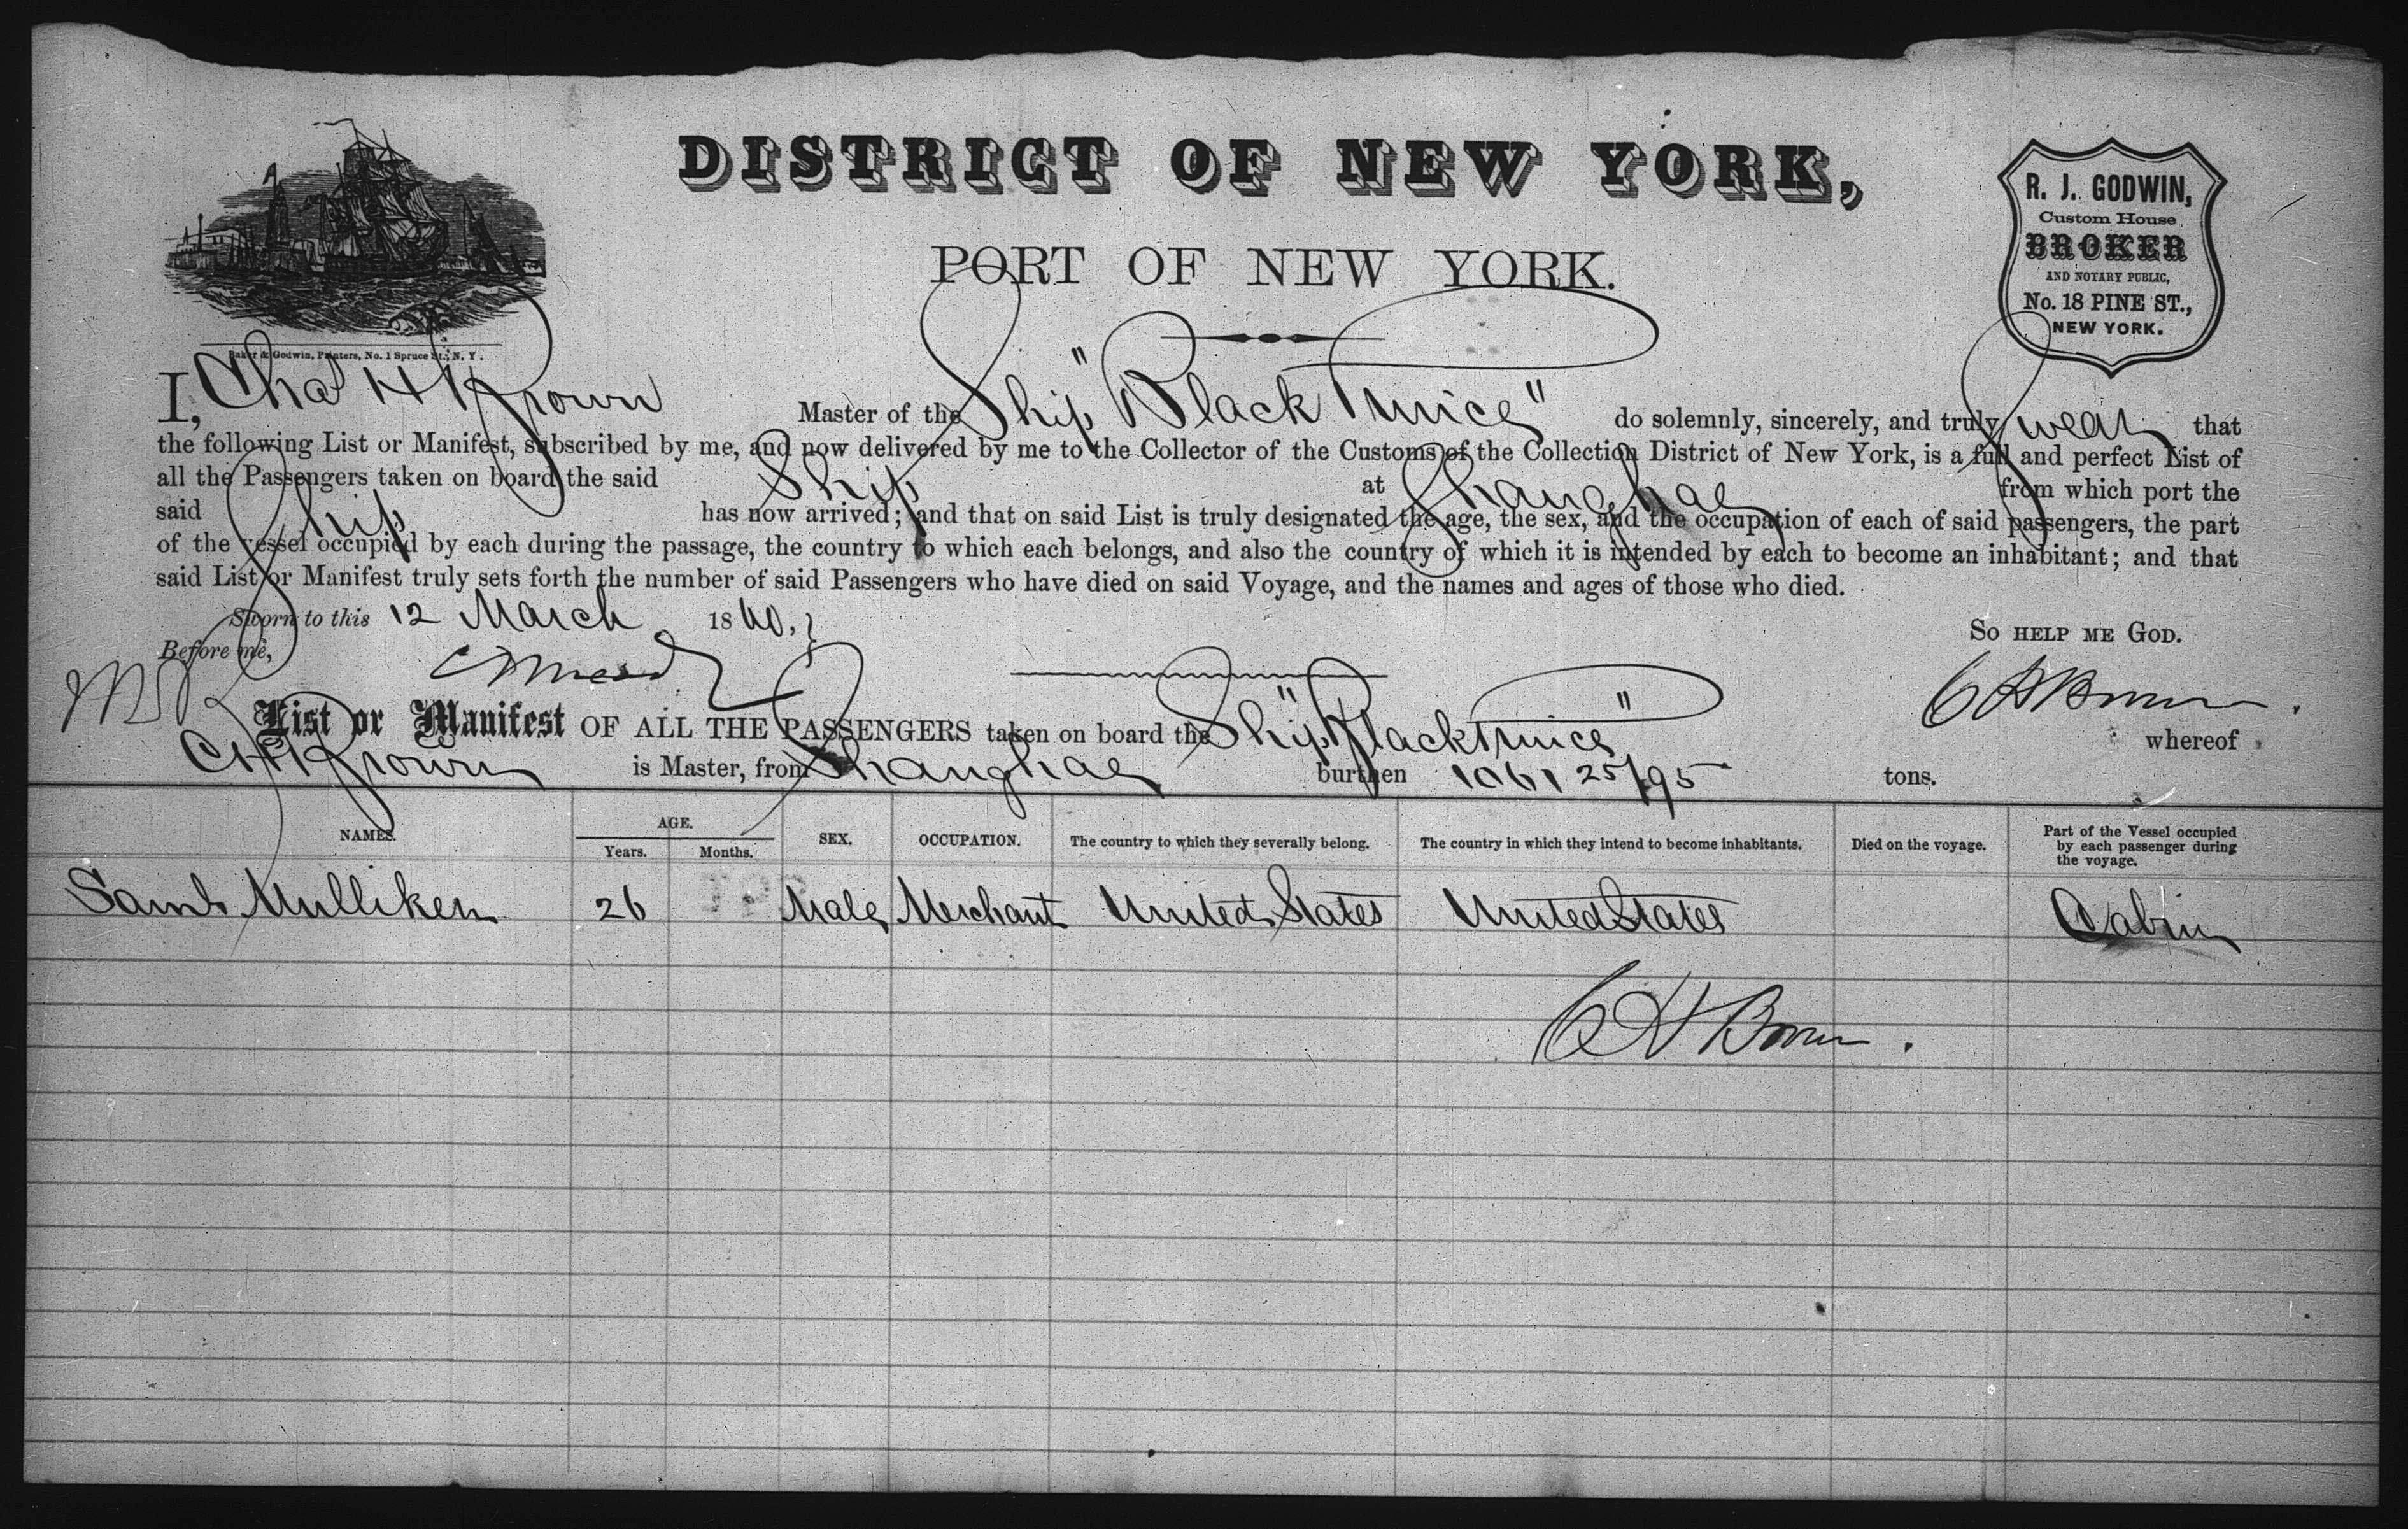 DISTRICT OF NEW YORK,
PORT OF NEW YORK.
R. J. GODWIN,
Custom House
BROKER
AND NOTARY PUBLIC,
No. 18 PINE ST.,
NEW YORK.
Baker & Godwin, Printers, No. 1 Spruce St., N. Y.
I, Chas H Brown Master of the Ship "Black Prince" do solemnly, sincerely, and truly swear that
the following List or Manifest, subscribed by me, and now delivered by me to the Collector of the Customs of the Collection District of New York, is a full and perfect List of
all the Passengers taken on board the said Ship at Shanghae from which port the
said Ship has now arrived; and that on said List is truly designated the age, the sex, and the occupation of each of said passengers, the part
of the vessel occupied by each during the passage, the country to which each belongs, and also the country of which it is intended by each to become an inhabitant; and that
said List or Manifest truly sets forth the number of said Passengers who have died on said Voyage, and the names and ages of those who died.
Sworn to this 12 March 1860.
So help me God.
Before me,
C H Brown.
List or Manifest OF ALL THE PASSENGERS taken on board the Ship "Black Prince" whereof
C H Brown is Master, from Shanghae burthen 1061 25/95 tons.
NAMES. AGE. Years. Months. SEX. OCCUPATION. The country to which they severally belong. The country in which they intend to become inhabitants. Died on the voyage. Part of the Vessel occupied by each passenger during the voyage.
Saml Mulliken 26 Male Merchant United States United States Cabin
C H Brown.